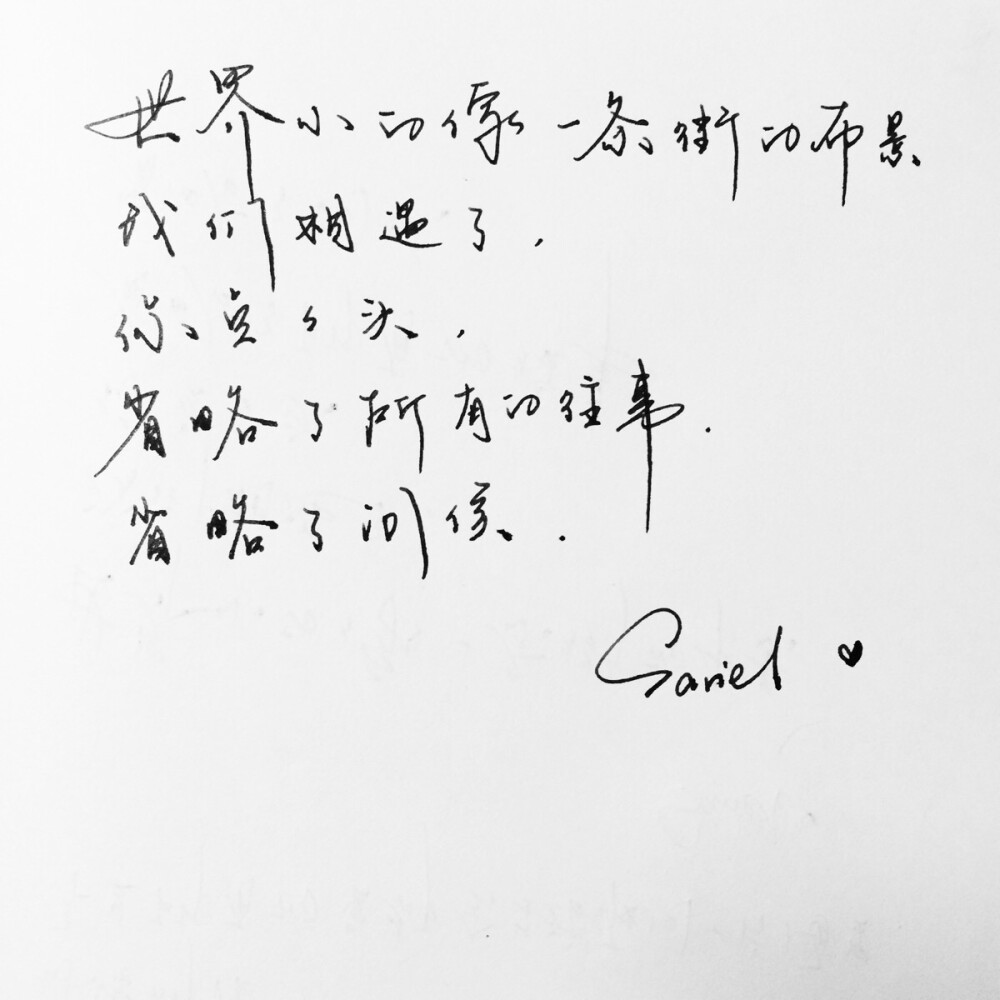 世界小的像一条街的布景
我们相遇了，
你点个头，
省略了所有的往事.
省略了问候.
Sariel ♥